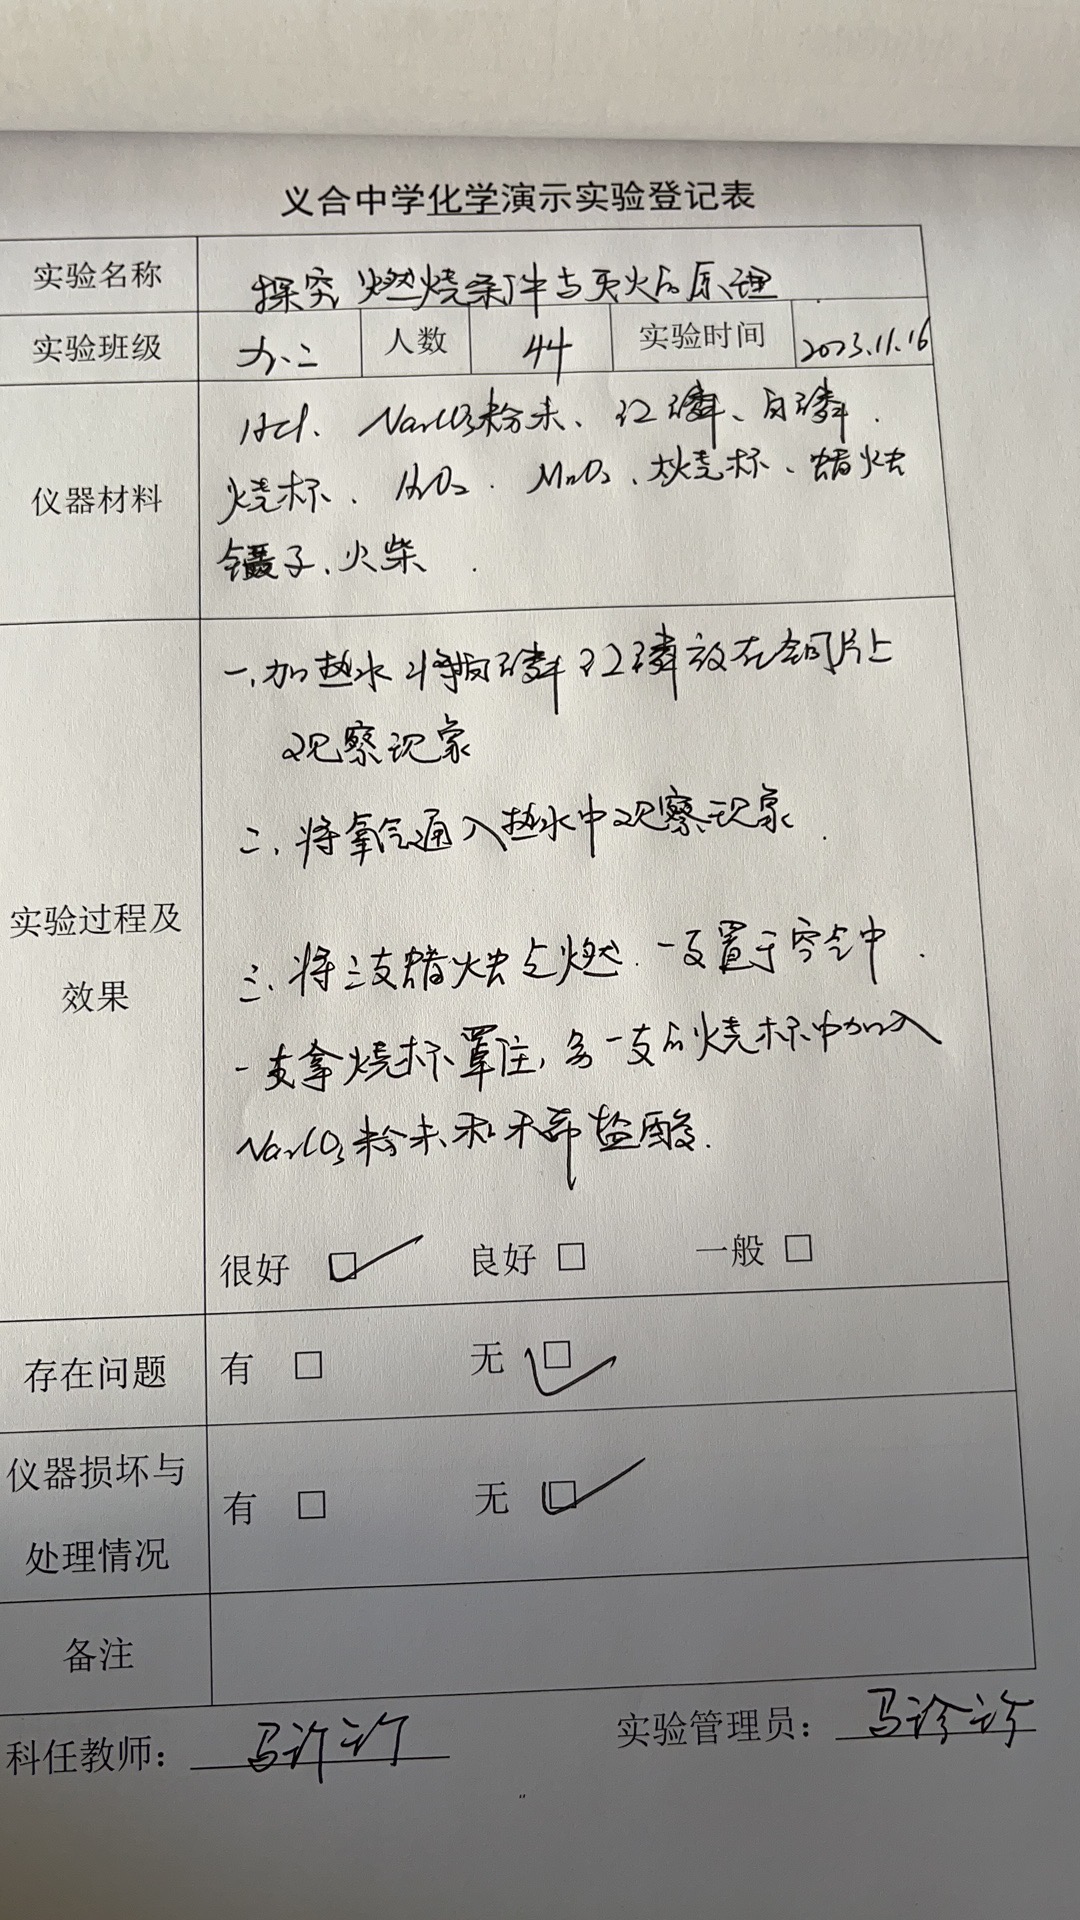 义合中学化学演示实验登记表
实验名称 探究燃烧条件与灭火的原理
实验班级 九.二 人数 44 实验时间 2023.11.16
HCl、Na₂CO₃粉末、红磷、白磷.
仪器材料 烧杯、H₂O₂.MnO₂、大烧杯、蜡烛
镊子、火柴.
一.加热水将白磷红磷放在铜片上
观察现象
二、将氧气通入热水中观察现象.
实验过程及效果
三、将三支蜡烛点燃.一支置于空气中.
一支拿烧杯罩住,另一支的烧杯中加入
Na₂CO₃粉末和稀盐酸.
很好 □ 良好 □ 一般 □
存在问题 有 □ 无 □
仪器损坏与处理情况 有 □ 无 □
备注
科任教师: 实验管理员: